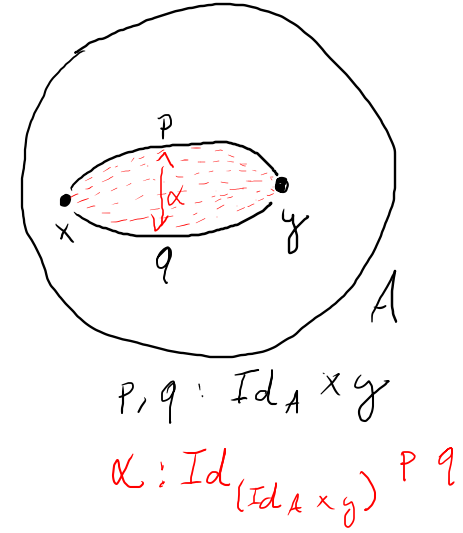 p
α
x
y
q
A
p, q : Id_A x y
α : Id_(Id_A x y) p q